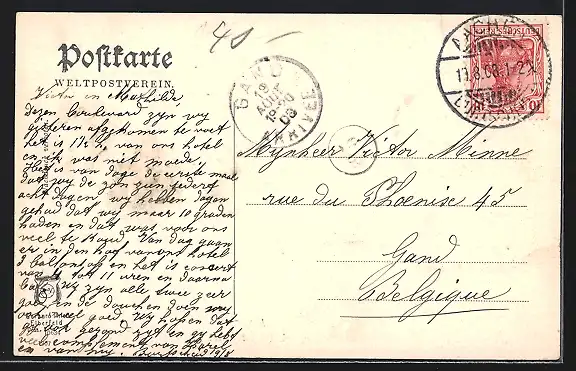 40 -
Postkarte
WELTPOSTVEREIN.
Victor en Mathilde
Dezen boulevard zyn wy
gisteren afgekomen te voet
het is 1½ u van ons hotel
en ik was niet moede.
Het is van dage de eerste maal
dat wy de zon zien sedert
acht dagen wy hebben dagen
gehad dat wy maar 10 graden
hadden en dat was voor ons
veel te koud. Van dag gaan
er in den hof van ons hotel
2 ballons op en het is concert
van 4 tot 11 uren daarna
bal. Wy zyn alle twee zeer
goed en de douchen doen my
veel goed. Wy hopen dat
gezond zyt en gy hebt
veel complimenten van Karel
en van my. Burtscheid 19/8
GAND
19
AOUT
08
ARRIVEE
AACHEN
19.8.08.1-2
DEUTSCHES REICH
10
Mynheer Victor Minne
rue du Phoenix 45
Gand
Belgique